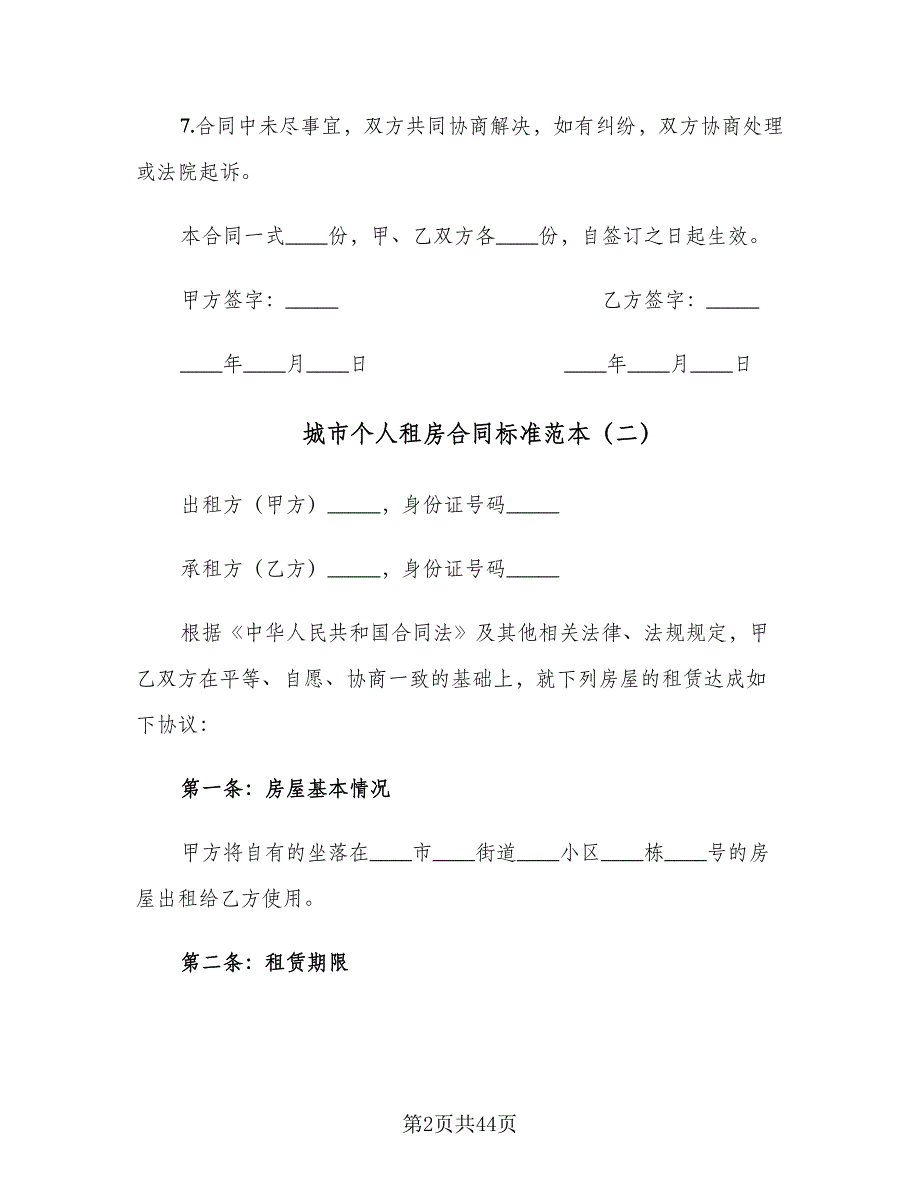 7.合同中未尽事宜，双方共同协商解决，如有纠纷，双方协商处理
或法院起诉。
本合同一式____份，甲、乙双方各____份，自签订之日起生效。
甲方签字：_____ 乙方签字：_____
____年____月____日 ____年____月____日
城市个人租房合同标准范本（二）
出租方（甲方）_____，身份证号码_____
承租方（乙方）_____，身份证号码_____
根据《中华人民共和国合同法》及其他相关法律、法规规定，甲
乙双方在平等、自愿、协商一致的基础上，就下列房屋的租赁达成如
下协议：
第一条：房屋基本情况
甲方将自有的坐落在____市____街道____小区____栋____号的房
屋出租给乙方使用。
第二条：租赁期限
第2页共44页